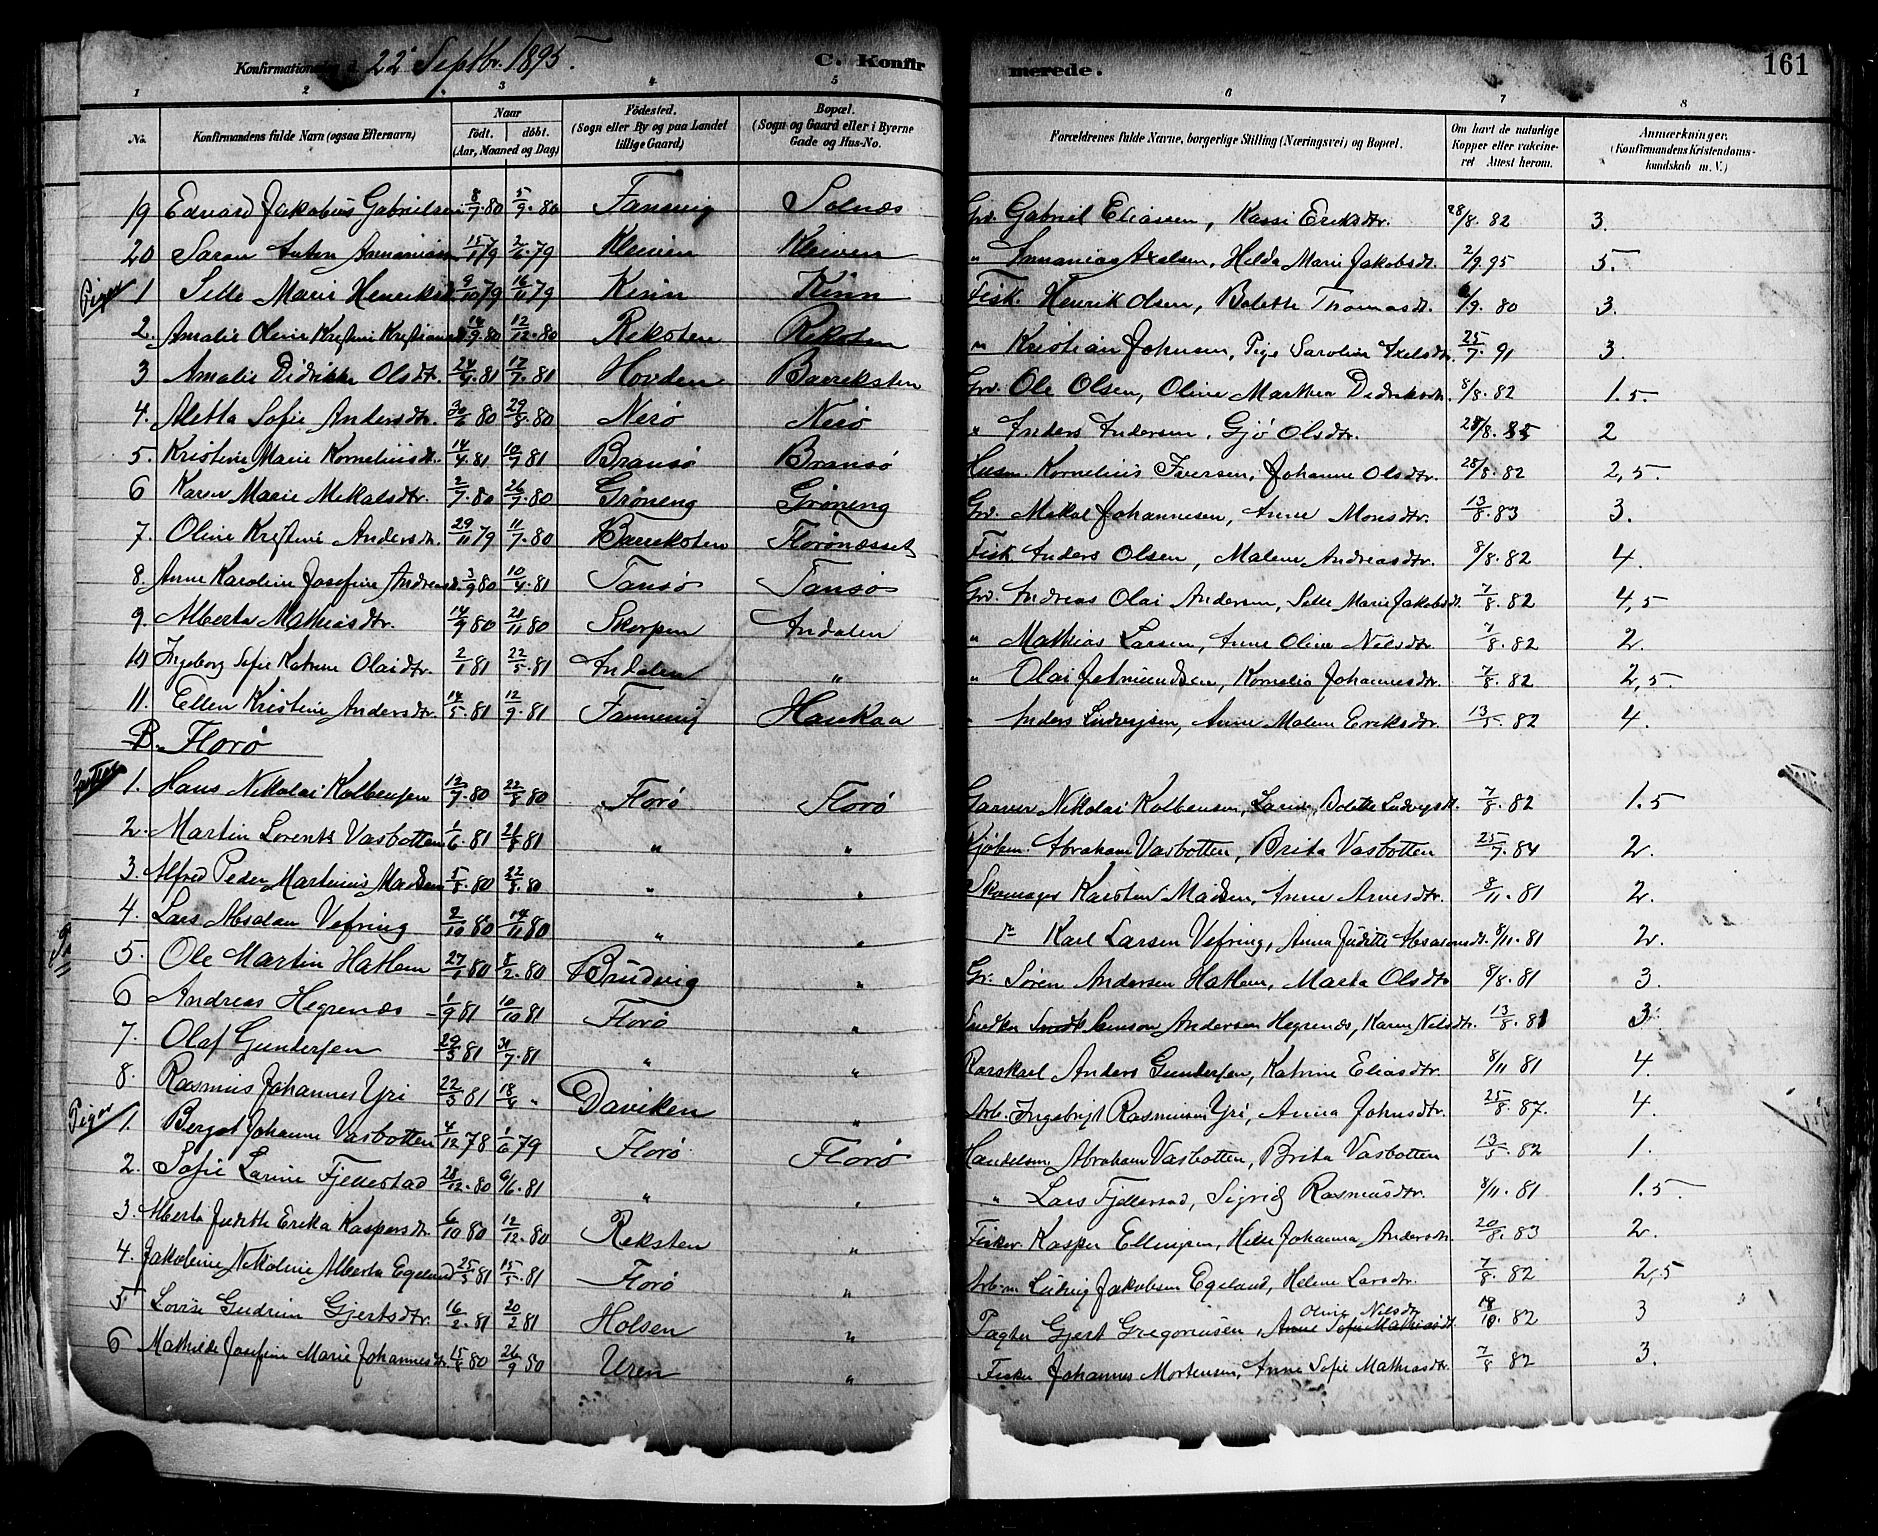 Konfirmationsdag d. 22 Septbr. 1895. C. Konfirmerede. 161
1 2 3 4 5 6 7 8
No. Konfirmandens fulde Navn (ogsaa Efternavn) Naar født. døbt. (Aar, Maaned og Dag) Fødested. (Sogn eller By og paa Landet tillige Gaard) Bopæl. (Sogn og Gaard eller i Byerne Gade og Hus-No. Forældrenes fulde Navne, borgerlige Stilling (Næringsvei) og Bopæl. Om havt de naturlige Kopper eller vakcineret Attest herom. Anmærkninger. (Konfirmandens Kristendomskundskab m. V.)
19 Edvard Jakobus Gabrielsen 8/7.80 5/9.80 Fanevig Solnæs Grd. Gabriel Eliassen, Kassi Eriksdtr. 28/8.82 3.
20 Anton 15/1 79 2/6.79 Kleiven Kleiven " Ananias Axelsen, Helda Marie Jakobsdt. 2/9.95 5.
Piger 1 Sille Marie Henriksd. 9/10 79 16/11 79 Kinn Kinn Fisk. Henrik Olsen, Bolette Thomasdt. 6/9.80 3.
2. Amalie Oline Kristine Kristiansd. 14/9.80 12/12.80 Reksten Reksten " Kristian Johnsen, Pige Saroline Axelsdtr. 25/7.91 3.
3 Amalie Didrikke Olsdt. 24/4.81 17/7.81 Hovden Barreksten Grd. Ole Olsen, Oline Marthea Didriksdt. 8/8.82 1.5.
4. Aletta Sofie Andersdtr. 30/6 80 29/8.80 Nerø Nerø " Anders Andersen, Gjø Olsdtr. 28/8.85 2
5. Kristine Marie Korneliusd. 14/4 81 10/7 81 Bransø Bransø Husm. Kornelius Iversen, Johanne Olsdtr. 28/8.82 2,5.
6 Karen Marie Mikalsdtr. 2/7.80 26/7.80 Grøneng Grøneng Grd. Mikal Johannesen, Anne Monsdtr. 13/8.83 3.
7. Oline Kristine Andersdt. 29/11 79 11/7.80 Barreksten Florønæsset Fisk. Anders Olsen, Malene Andreasdtr. 8/8.82 4.
8. Anne Karoline Josefine Andreasd. 3/9 80 10/4.81 Tansø Tansø Grd. Andreas Olai Andersen, Sille Marie Jakobsdt. 7/8.82 4,5
9. Alberta Mathiasdtr. 14/9 80 21/11 80 Skorpen Indalen " Mathias Larsen, Anne Oline Nilsdtr. 7/8.82 2.
10 Ingeborg Sofie Katrine Olaidtr. 2/1 81 22/5.81 Indalen " " Olai Jetmundsen, Kornelia Johannesdtr. 7/8.82 2,5.
11. Ellen Kristine Andersdtr. 14/5.81 12/9.81 Fannevig Haukaa " Anders Ludvigsen, Anne Malene Eriksdtr. 13/5.82 4.
B. Florø
Gutter 1. Hans Nikolai Kolbensen 12/7.80 22/8 80 Florø Florø Garver Nikolai Kolbensen, Larine Bolette Ludvigsdt. 7/8.82 1.5
2. Martin Lorents Vasbotten 1/6.81 21/8 81 " " Kjøbm. Abraham Vasbotten, Brita Vasbotten 25/7.84 2.
3. Alfred Peder Martinius Madsen 5/8.80 22/8.80 " " Skomager Karsten Madsen, Anne Arnesdtr. 8/11.81 2.
4. Lars Absalon Vefring 2/10 80 14/11 80 " " Karl Larsen Vefring, Anna Juditte Absalonsdt. 8/11.81 2.
5. Ole Martin Hatlem 27/1 80 8/2.80 Brudvig " Gr. Søren Andersen Hatlem, Marta Olsdtr 8/8.81 3.
6 Andreas Hegrenæs 1/9 81 10/10 81 Florø " Snedker Simson Andersen Hegrenæs, Karen Nilsdtr. 13/8.81 3.
7. Olaf Gundersen 29/5 81 31/7.81 " " Karskarl Anders Gundersen, Katrine Eliasdtr. 8/11 81 4.
8. Rasmus Johannes Yri 22/3 81 18/4 " Daviken " Arb. Ingebrigt Rasmussen Yri, Anna Johnsdtr. 25/8.87. 4.
Piger 1. Bergot Johanne Vasbotten 4/12 78 1/6 79 Florø Florø Handelsm. Abraham Vasbotten, Brita Vasbotten 13/5.82 1.
2. Sofie Larine Fjellestad 28/12.80 6/6.81 " " " Lars Fjellestad, Sigrid Rasmusdtr. 8/11.81 1.5
3. Alberta Judithe Erika Kaspersdt. 6/10 80 12/12.80 Reksten " Fisker Kasper Ellingsen, Helle Johanna Andersdtr. 20/8.83 2.
4. Jakobine Nikoline Alberta Egelund 25/3 81 15/5.81 Florø " Arb.m Ludvig Jakobsen Egelund, Helene Larsdtr. 7/8.82 2,5
5 Lovise Gudrun Gjertsdtr. 16/2.81 20/2 81 Holsen " Pagter Gjert Gregoriusen, Oline Nilsdtr Anne Sofie Mathiasdt. 18/10.82 3
6 Mathilde Josefine Marie Johannesdtr. 15/8 80 26/9 80 Uren " Fisker Johannes Mortensen, Anne Sofie Mathiasdtr. 7/8 82 3.